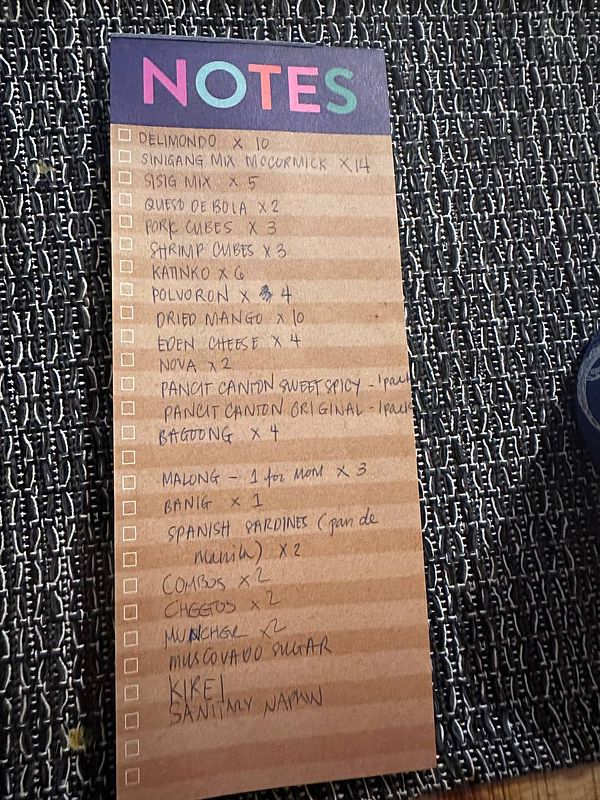 NOTES
DELIMONDO x 10
SINIGANG MIX MCCORMICK x 14
SISIG MIX x 5
QUESO DE BOLA x 2
PORK CUBES x 3
SHRIMP CUBES x 3
KATINKO x 6
POLVORON x 4
DRIED MANGO x 10
EDEN CHEESE x 4
NOVA x 2
PANCIT CANTON SWEET SPICY - 1 pack
PANCIT CANTON ORIGINAL - 1 pack
BAGOONG x 4
MALONG - 1 for MOM x 3
BANIG x 1
SPANISH SARDINES (pan de
Manila) x 2
COMBOS x 2
CHEETOS x 2
MUNCHER x 2
MUSCOVADO SUGAR
KIREI
SANITARY NAPKIN